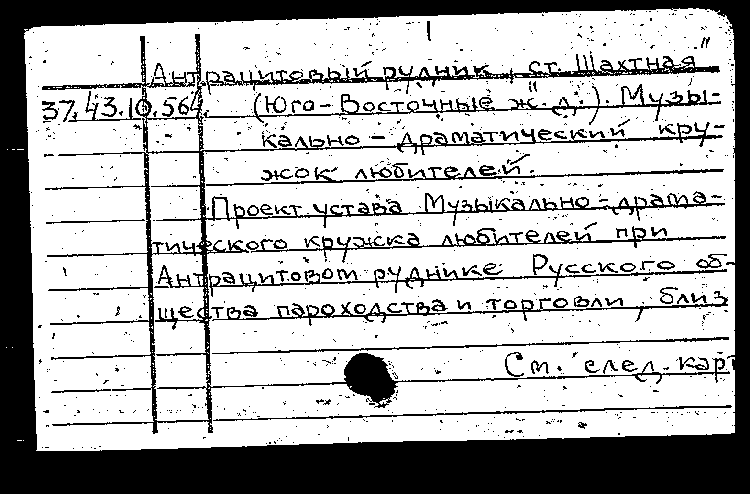 Антрацитовый рудник, ст. Шахтная"
37.43.10.564. (Юго-Восточные ж. д.). Музы-
кально-драматический кру-
жок любителей.
Проект устава Музыкально-драма-
тического кружка любителей при
Антрацитовом руднике Русского об-
щества пароходства и торговли, близ
См. след. карт